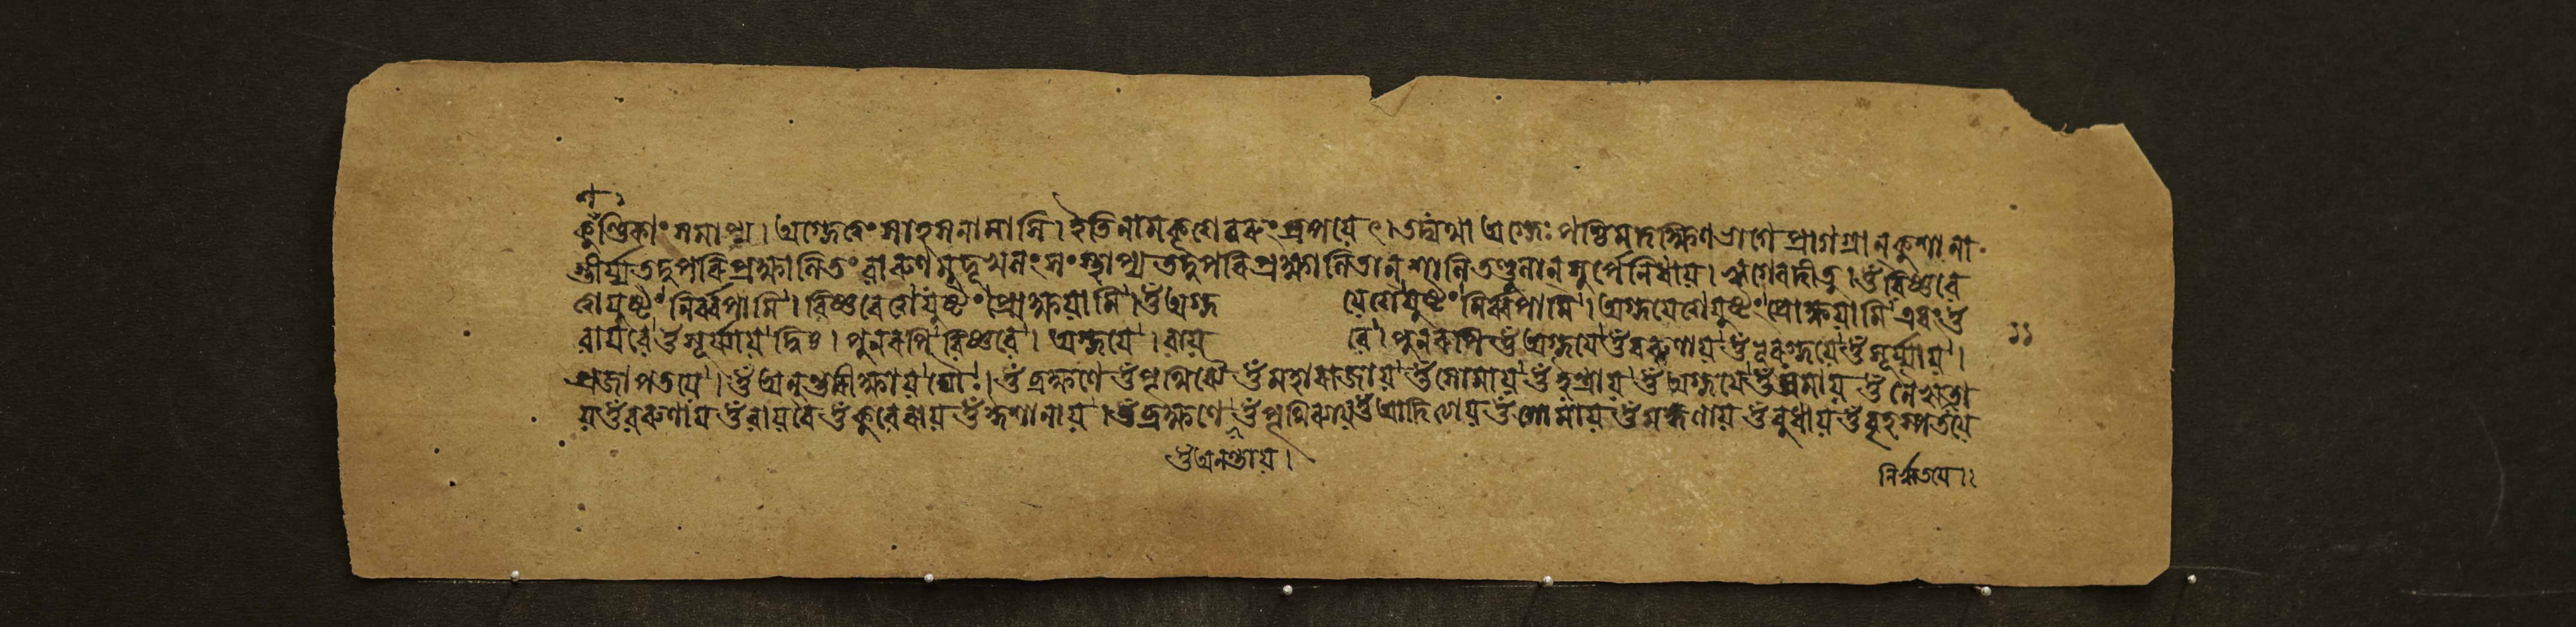 কুণ্ডিকাং সমাপ্য। অগ্নেত্বং সাহসনামাসি। ইতিনামকৃত্বে চরুং শ্রপয়েৎ। তদ্যথা অগ্নেঃ পশ্চিমদক্ষিণভাগে প্রাগগ্রান কুশানা
স্তীর্য্য তদুপরি প্রক্ষালিতং বারুণমুদূখলং সংস্থাপ্য তদুপরি প্রক্ষালিতান্ শালিতণ্ডুলান্ সূর্পেনিধায়। ওঁ বিষ্ণবে
ত্বাযুষ্টং নির্ব্বপামি। বিষ্ণবে ত্বাযুষ্টং প্রোক্ষয়ামি। ওঁ অগ্ন য়েত্বাযুষ্টং নির্ব্বপামি। অগ্নয়েত্বাযুষ্টং প্রোক্ষয়ামি এবং ওঁ
বায়বে ওঁ সূর্য্যায় দ্বিঃ। পুনরপি বিষ্ণবে। অগ্নয়ে। বায় বে। পুনরপি ওঁ অগ্নয়ে ওঁ বরুণায় ওঁ ওঁ সূর্য্যায়।
১১
প্রজাপতয়ে। ওঁ অনন্তরীক্ষায় দ্যৌঃ। ওঁ ব্রহ্মণে ওঁ পৃথিব্যৈ ওঁ মহারাজায় ওঁ সোমায় ওঁ ইন্দ্রায় ওঁ অগ্নয়ে ওঁ যমায় ওঁ নৈঋতা
য় ওঁ বরুণায় ওঁ বায়বে ওঁ কুবেরায় ওঁ ঈশানায়। ওঁ ব্রহ্মণে ওঁ পৃথিব্যৈ ওঁ আদিত্যেয় ওঁ সোমায় ওঁ মঙ্গলায় ওঁ বুধায় ওঁ বৃহস্পতয়ে
ওঁ অনন্তায়।
নিঋতয়ে।